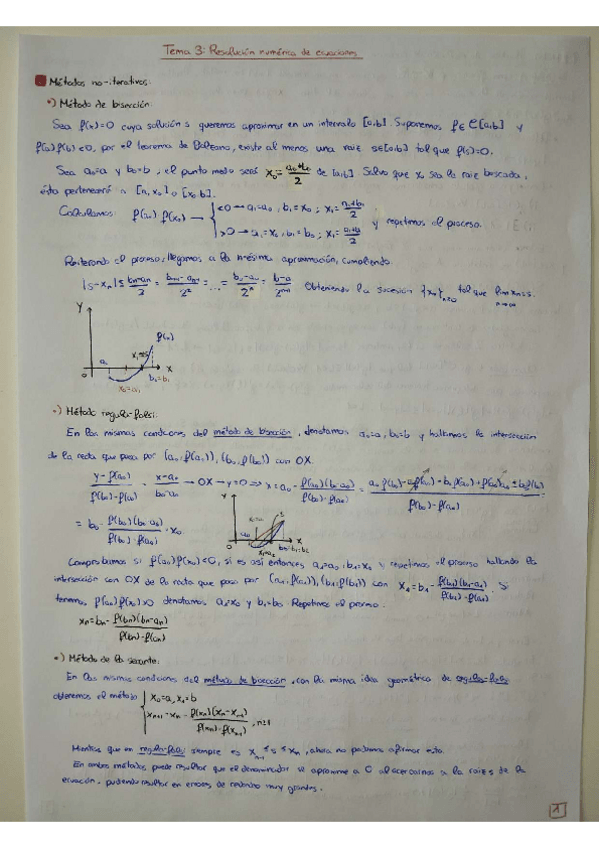 Tema 3: Resolución numérica de ecuaciones
Métodos no-iterativos:
•) Método de bisección:
Sea f(x)=0 cuya solución s queremos aproximar en un intervalo [a,b]. Suponemos f∈C[a,b] y
f(a)f(b)<0, por el teorema de Bolzano, existe al menos una raíz s∈[a,b] tal que f(s)=0.
Sea a₀=a y b₀=b, el punto medio será x₀=(a₀+b₀)/2 de [a,b]. Salvo que x₀ sea la raíz buscada,
ésta pertenecerá a [a,x₀] o [x₀,b].
Calculamos: f(a₀)f(x₀) → { <0 → a₁=a₀, b₁=x₀; x₁=(a₁+b₁)/2
>0 → a₁=x₀, b₁=b₀; x₁=(a₁+b₁)/2 y repetimos el proceso.
Reiterando el proceso, llegamos a la n-ésima aproximación, cumpliendo:
|s-xₙ|≤(bₙ-aₙ)/2 = (bₙ₋₁-aₙ₋₁)/2² = ... = (b₀-a₀)/2ⁿ = (b-a)/2ⁿ⁺¹ Obteniendo la sucesión {xₙ}ₙ≥₀ tal que lim xₙ=s.
n→∞
Y
f(x)
X
0
•) Método regula-falsi:
En las mismas condiciones del método de bisección, denotamos a₀=a, b₀=b y hallamos la intersección
de la recta que pasa por (a₀,f(a₀)), (b₀,f(b₀)) con OX.
(y-f(a₀))/(f(b₀)-f(a₀)) = (x-a₀)/(b₀-a₀) → OX → y=0 ⇒ x=a₀-f(a₀)(b₀-a₀)/(f(b₀)-f(a₀)) =
= b₀-f(b₀)(b₀-a₀)/(f(b₀)-f(a₀)) = x₀
Comprobamos si f(a₀)f(x₀)<0, si es así entonces a₁=a₀, b₁=x₀ y repetimos el proceso hallando la
intersección con OX de la recta que pasa por (a₁,f(a₁)), (b₁,f(b₁)) con x₁=b₁-f(b₁)(b₁-a₁)/(f(b₁)-f(a₁)). Si
tenemos f(a₀)f(x₀)>0 denotamos a₁=x₀ y b₁=b₀. Repetimos el proceso.
xₙ=bₙ-f(bₙ)(bₙ-aₙ)/(f(bₙ)-f(aₙ))
•) Método de la secante:
En las mismas condiciones del método de bisección, con la misma idea geométrica de regula-falsi
obtenemos el método { x₀=a, x₁=b
xₙ₊₁=xₙ-f(xₙ)(xₙ-xₙ₋₁)/(f(xₙ)-f(xₙ₋₁)), n≥1
Mientras que en regula-falsi siempre es xₙ₋₁≤s≤xₙ, ahora no podemos afirmar esto.
En ambos métodos puede resultar que el denominador se aproxime a 0 al acercarnos a la raíz s de la
ecuación, pudiendo resultar en errores de redondeo muy grandes.
1